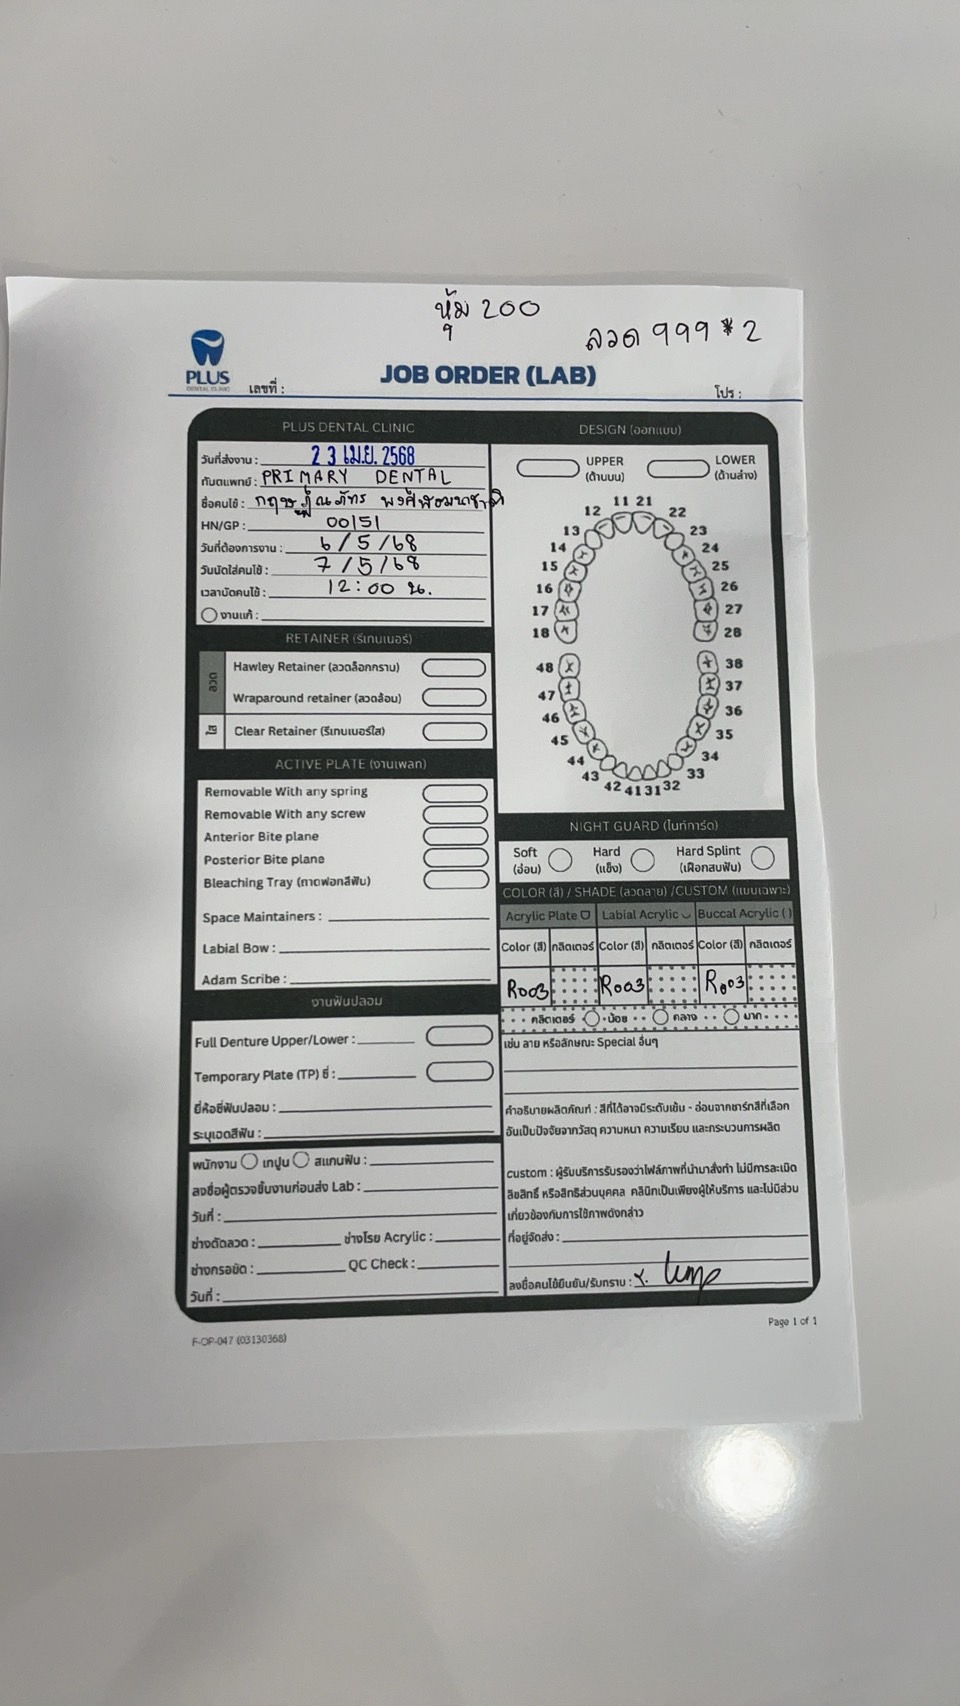 หุ้ม 200
ลวด 999 * 2
PLUS
DENTAL CLINIC
เลขที่ :
JOB ORDER (LAB)
โปร :
PLUS DENTAL CLINIC
วันที่ส่งงาน : 23 เม.ย. 2568
ทันตแพทย์ : PRIMARY DENTAL
ชื่อคนไข้ :
HN/GP : 00151
วันที่ต้องการงาน : 6/5/68
วันนัดใส่คนไข้ : 7/5/68
เวลานัดคนไข้ : 12:00 น.
งานแก้ :
RETAINER (รีเทนเนอร์)
ลวด
Hawley Retainer (ลวดล็อกกราม)
Wraparound retainer (ลวดอ้อม)
ใส
Clear Retainer (รีเทนเนอร์ใส)
ACTIVE PLATE (งานเพลท)
Removable With any spring
Removable With any screw
Anterior Bite plane
Posterior Bite plane
Bleaching Tray (ถาดฟอกสีฟัน)
Space Maintainers :
Labial Bow :
Adam Scribe :
งานฟันปลอม
Full Denture Upper/Lower :
Temporary Plate (TP) ซี่ :
ยี่ห้อซี่ฟันปลอม :
ระบุเฉดสีฟัน :
พนักงาน เทปูน สแกนฟัน :
ลงชื่อผู้ตรวจชิ้นงานก่อนส่ง Lab :
วันที่ :
ช่างดัดลวด : ช่างโรย Acrylic :
ช่างกรอขัด : QC Check :
วันที่ :
DESIGN (ออกแบบ)
UPPER
(ด้านบน)
LOWER
(ด้านล่าง)
11 21
12 22
13 23
14 24
15 25
16 26
17 27
18 28
48 38
47 37
46 36
45 35
44 34
43 33
42 41 31 32
NIGHT GUARD (ไนท์การ์ด)
Soft
(อ่อน)
Hard
(แข็ง)
Hard Splint
(เฝือกสบฟัน)
COLOR (สี) / SHADE (ลวดลาย) /CUSTOM (แบบเฉพาะ)
Acrylic Plate Labial Acrylic Buccal Acrylic ( )
Color (สี) กลิตเตอร์ Color (สี) กลิตเตอร์ Color (สี) กลิตเตอร์
R003 R003 R003
กลิตเตอร์ น้อย กลาง มาก
เช่น ลาย หรือลักษณะ Special อื่นๆ
คำอธิบายผลิตภัณฑ์ : สีที่ได้อาจมีระดับเข้ม - อ่อนจากชาร์ทสีที่เลือก
อันเป็นปัจจัยจากวัสดุ ความหนา ความเรียบ และกระบวนการผลิต
custom : ผู้รับบริการรับรองว่าไฟล์ภาพที่นำมาสั่งทำ ไม่มีการละเมิด
ลิขสิทธิ์ หรือสิทธิส่วนบุคคล คลินิกเป็นเพียงผู้ให้บริการ และไม่มีส่วน
เกี่ยวข้องกับการใช้ภาพดังกล่าว
ที่อยู่จัดส่ง :
ลงชื่อคนไข้ยืนยัน/รับทราบ :
F-OP-047 (03130368)
Page 1 of 1